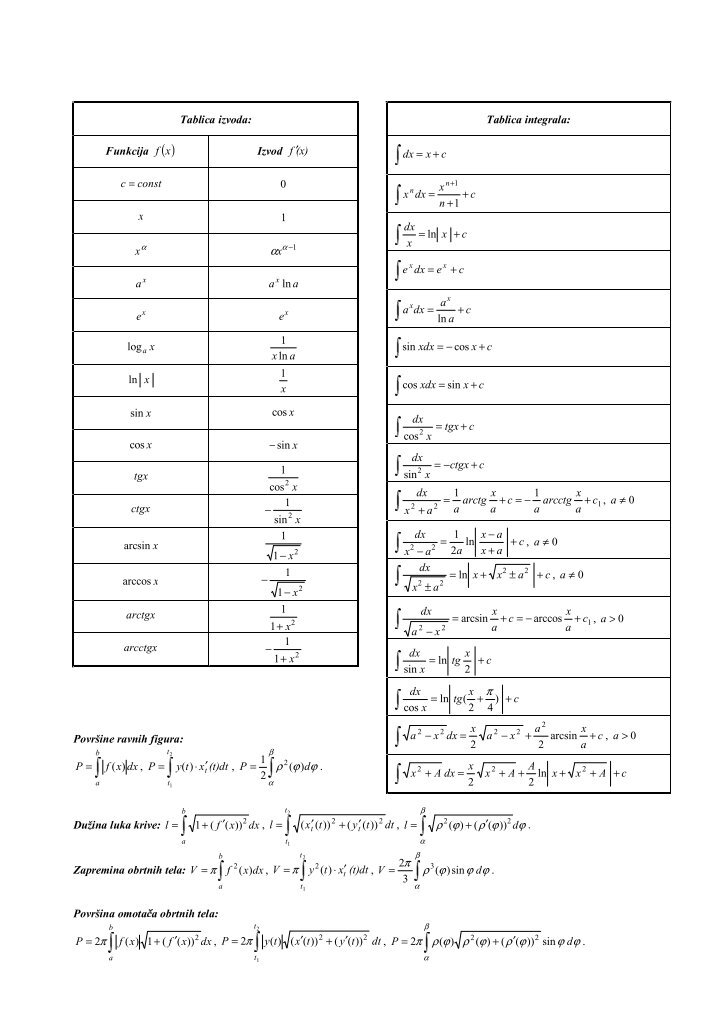 Tablica izvoda:
Funkcija f(x) Izvod f′(x)
c = const 0
x 1
x^α αx^(α−1)
a^x a^x ln a
e^x e^x
log_a x 1/(x ln a)
ln|x| 1/x
sin x cos x
cos x − sin x
tgx 1/cos² x
ctgx − 1/sin² x
arcsin x 1/√(1 − x²)
arccos x − 1/√(1 − x²)
arctgx 1/(1 + x²)
arcctgx − 1/(1 + x²)
Tablica integrala:
∫ dx = x + c
∫ x^n dx = x^(n+1)/(n + 1) + c
∫ dx/x = ln|x| + c
∫ e^x dx = e^x + c
∫ a^x dx = a^x/ln a + c
∫ sin xdx = − cos x + c
∫ cos xdx = sin x + c
∫ dx/cos² x = tgx + c
∫ dx/sin² x = −ctgx + c
∫ dx/(x² + a²) = 1/a arctg x/a + c = − 1/a arcctg x/a + c₁, a ≠ 0
∫ dx/(x² − a²) = 1/2a ln|(x − a)/(x + a)| + c, a ≠ 0
∫ dx/√(x² ± a²) = ln|x + √(x² ± a²)| + c, a ≠ 0
∫ dx/√(a² − x²) = arcsin x/a + c = − arccos x/a + c₁, a > 0
∫ dx/sin x = ln|tg x/2| + c
∫ dx/cos x = ln|tg(x/2 + π/4)| + c
∫ √(a² − x²) dx = x/2 √(a² − x²) + a²/2 arcsin x/a + c, a > 0
∫ √(x² + A) dx = x/2 √(x² + A) + A/2 ln|x + √(x² + A)| + c
Površine ravnih figura:
P = ∫_a^b |f(x)| dx, P = ∫_(t₁)^(t₂) y(t) · x′_t(t)dt, P = 1/2 ∫_α^β ρ²(φ)dφ.
Dužina luka krive: l = ∫_a^b √(1 + (f′(x))²) dx, l = ∫_(t₁)^(t₂) √((x′_t(t))² + (y′_t(t))²) dt, l = ∫_α^β √(ρ²(φ) + (ρ′(φ))²) dφ.
Zapremina obrtnih tela: V = π ∫_a^b f²(x)dx, V = π ∫_(t₁)^(t₂) y²(t) · x′_t(t)dt, V = 2π/3 ∫_α^β ρ³(φ) sin φ dφ.
Površina omotača obrtnih tela:
P = 2π ∫_a^b |f(x)| √(1 + (f′(x))²) dx, P = 2π ∫_(t₁)^(t₂) |y(t)| √((x′(t))² + (y′(t))²) dt, P = 2π ∫_α^β ρ(φ) √(ρ²(φ) + (ρ′(φ))²) sin φ dφ.